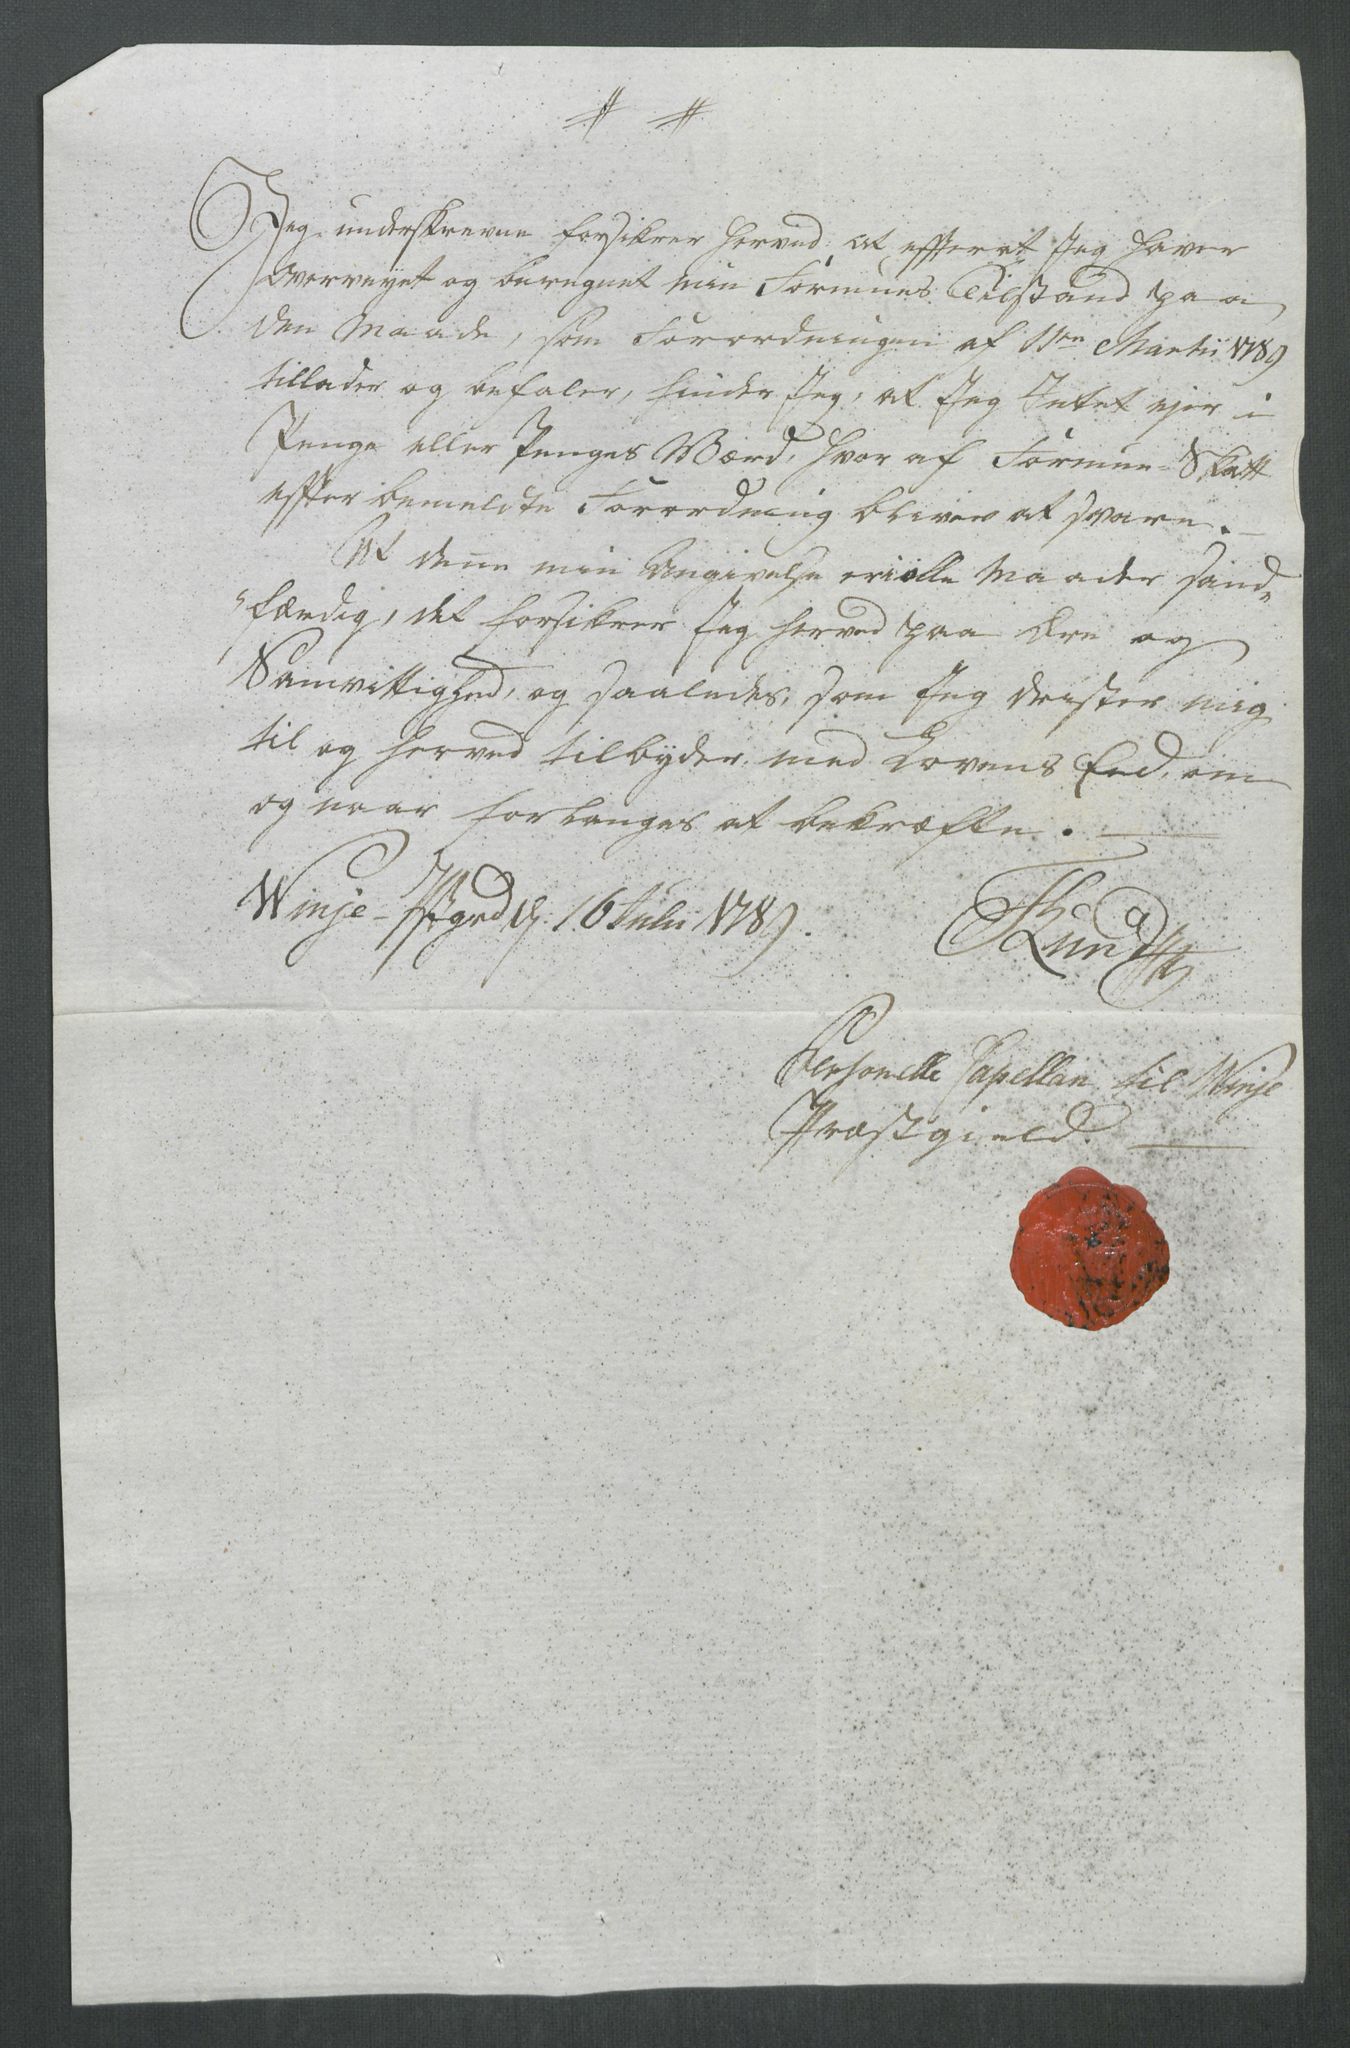 Jeg underskrevne forsikrer herved, at effterat Jeg haver
overveyet og beregnet min Formues Tilstand paa
den Maade, som Forordningen af 11te Martii 1789
tillader og befaler, finder Jeg, at Jeg Intet ejer i
Penge eller Penges Værd, hvoraf Formue-Skatt
effter bemeldte Forordning bliver at svare. —
At denne min Angivelse er i alle Maader sand-
færdig, det forsikrer Jeg herved paa Ære og
Samvittighed, og saaledes, som Jeg drister mig
til og herved tilbyder, med Lovens Eed, om
og naar forlanges at bekræfte. —
Winje-Pstgrd d: 16 Julii 1789.
Personelle Capellan til Winje
Præstgield. —